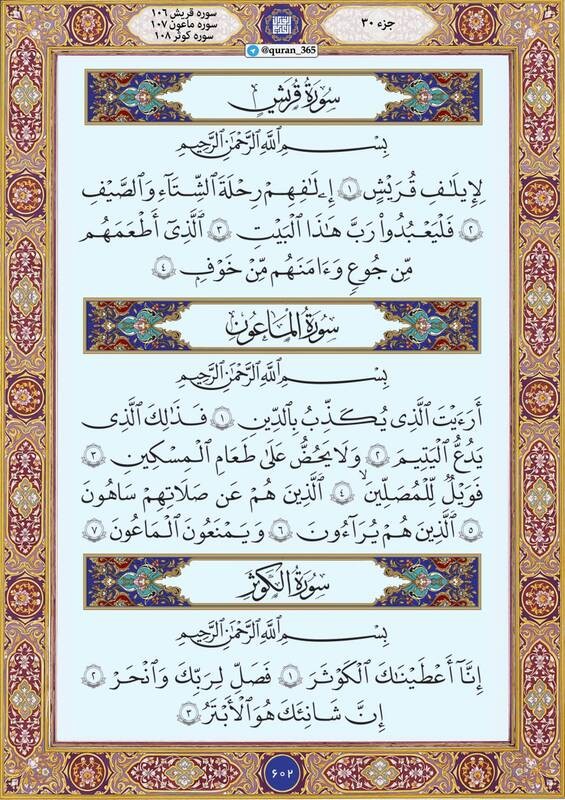 سوره قریش ۱۰۶
سوره ماعون ۱۰۷
سوره کوثر ۱۰۸
جزء ۳۰
@quran_365
سُورَةُ قُرَيْشٍ
بِسْمِ ٱللَّهِ ٱلرَّحْمَٰنِ ٱلرَّحِيمِ
لِإِيلَٰفِ قُرَيْشٍ ۝١ إِۦلَٰفِهِمْ رِحْلَةَ ٱلشِّتَآءِ وَٱلصَّيْفِ
۝٢ فَلْيَعْبُدُوا۟ رَبَّ هَٰذَا ٱلْبَيْتِ ۝٣ ٱلَّذِىٓ أَطْعَمَهُم
مِّن جُوعٍ وَءَامَنَهُم مِّنْ خَوْفٍۭ ۝٤
سُورَةُ ٱلْمَاعُونِ
بِسْمِ ٱللَّهِ ٱلرَّحْمَٰنِ ٱلرَّحِيمِ
أَرَءَيْتَ ٱلَّذِى يُكَذِّبُ بِٱلدِّينِ ۝١ فَذَٰلِكَ ٱلَّذِى
يَدُعُّ ٱلْيَتِيمَ ۝٢ وَلَا يَحُضُّ عَلَىٰ طَعَامِ ٱلْمِسْكِينِ ۝٣
فَوَيْلٌ لِّلْمُصَلِّينَ ۝٤ ٱلَّذِينَ هُمْ عَن صَلَاتِهِمْ سَاهُونَ
۝٥ ٱلَّذِينَ هُمْ يُرَآءُونَ ۝٦ وَيَمْنَعُونَ ٱلْمَاعُونَ ۝٧
سُورَةُ ٱلْكَوْثَرِ
بِسْمِ ٱللَّهِ ٱلرَّحْمَٰنِ ٱلرَّحِيمِ
إِنَّآ أَعْطَيْنَٰكَ ٱلْكَوْثَرَ ۝١ فَصَلِّ لِرَبِّكَ وَٱنْحَرْ ۝٢
إِنَّ شَانِئَكَ هُوَ ٱلْأَبْتَرُ ۝٣
۶۰۲